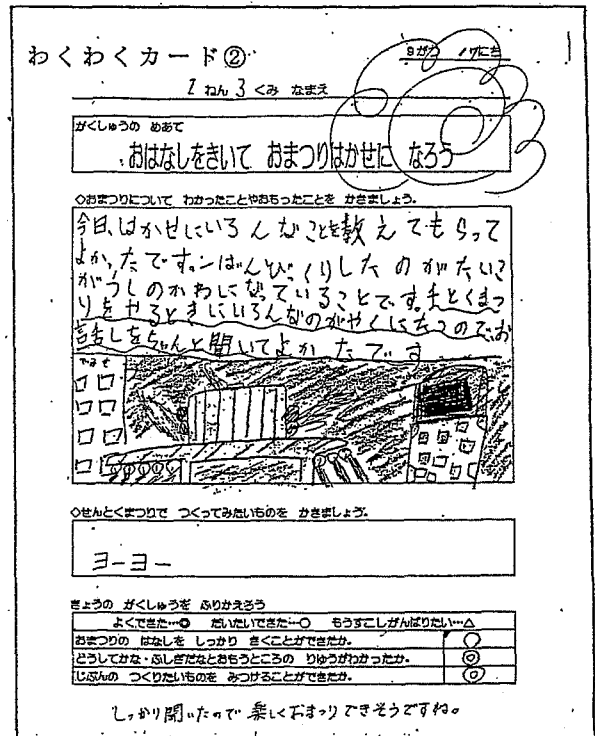 わくわくカード②
9がつ 17にち
1ねん3くみ なまえ
がくしゅうの めあて
おはなしをきいて おまつりはかせに なろう
◇おまつりについて わかったことやおもったことを かきましょう。
今日、はかせにいろんなことを教えてもらって
よかったです。一ばんびっくりしたのがたいこ
がうしのかわになっていることです。せんとくまつ
りをやるときにいろんなのがやくにたつので、お
話しをちゃんと聞いてよかったです
◇せんとくまつりで つくってみたいものを かきましょう。
ヨーヨー
きょうの がくしゅうを ふりかえろう
よくできた…◎ だいたいできた…○ もうすこしがんばりたい…△
おまつりの はなしを しっかり きくことができたか。 ○
どうしてかな・ふしぎだなとおもうところの りゆうがわかったか。 ◎
じぶんの つくりたいものを みつけることができたか。 ◎
しっかり聞いたので楽しくおまつりできそうですね。